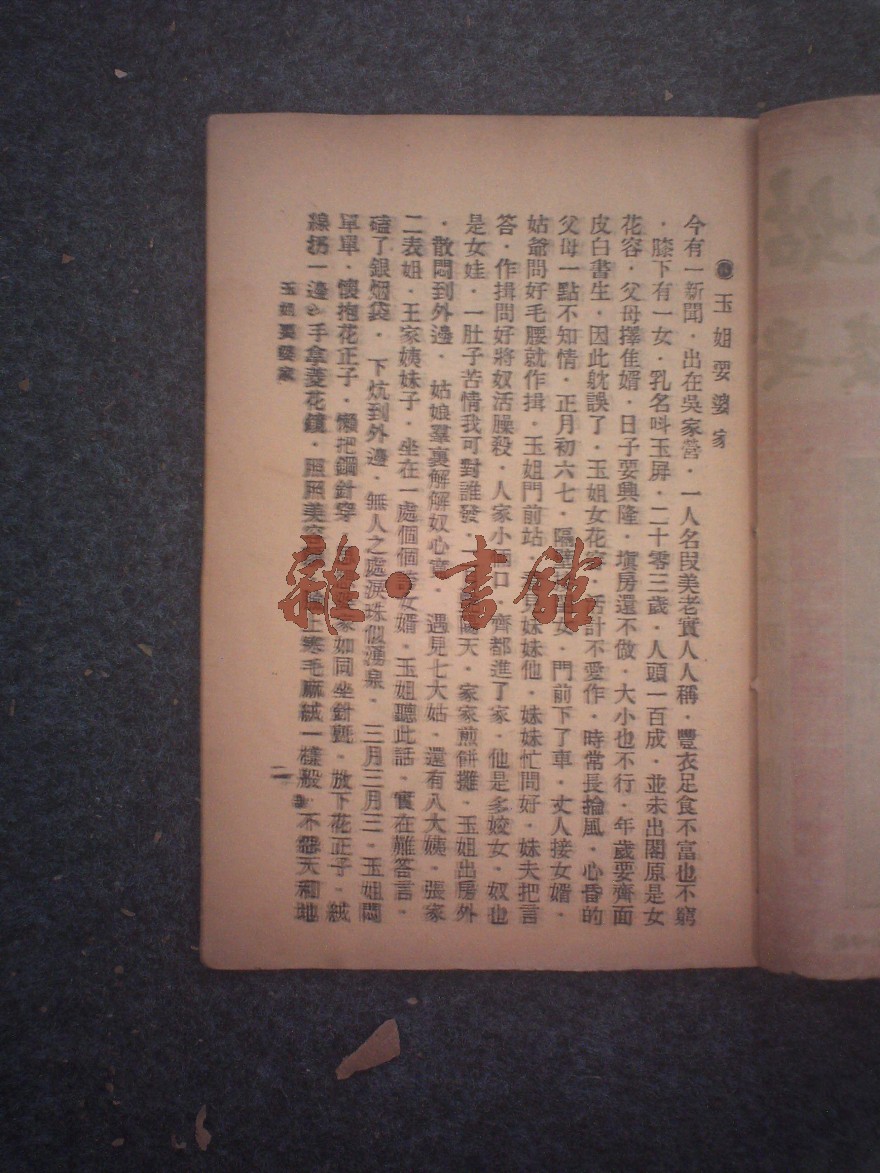 玉姐要婆家
今有一新聞．出在吳家營．一人名叚美老實人人稱．豐衣足食不富也不窮
．膝下有一女．乳名呌玉屏．二十零三歲．人頭一百成．並未出閣原是女
花容．父母擇佳婿．日子要興隆．塡房還不做．大小也不行．年歲要齊面
皮白書生．因此躭誤了．玉姐女花容．活計不愛作．時常長掄風．心昏的
父母一點不知情．正月初六七．隔壁．門前下了車．丈人接女婿．
姑爺問好毛腰就作揖．玉姐門前站．見妹妹他．妹妹忙問好．妹夫把言
答．作揖問好將奴活臊殺．人家小兩口．齊都進了家．他是多姣女．奴也
是女娃．一肚子苦情我可對誰發．天．家家煎餅攤．玉姐出房外
．散悶到外邊．姑娘羣裏解解奴心寬．遇見七大姑．還有八大姨．張家
二表姐．王家姨妹子．坐在一處個個女婿．玉姐聽此話．實在難答言．
磕了銀烟袋．下炕到外邊．無人之處淚珠似湧泉．三月三月三．玉姐悶
單單．懷抱花正子．懶把鋼針穿．家如同坐針氈．放下花正子．絨
線扔一邊．手拿菱花鏡．照照美容．毛麻絨一樣般．不怨天和地
玉姐要婆家
一
雜·書館